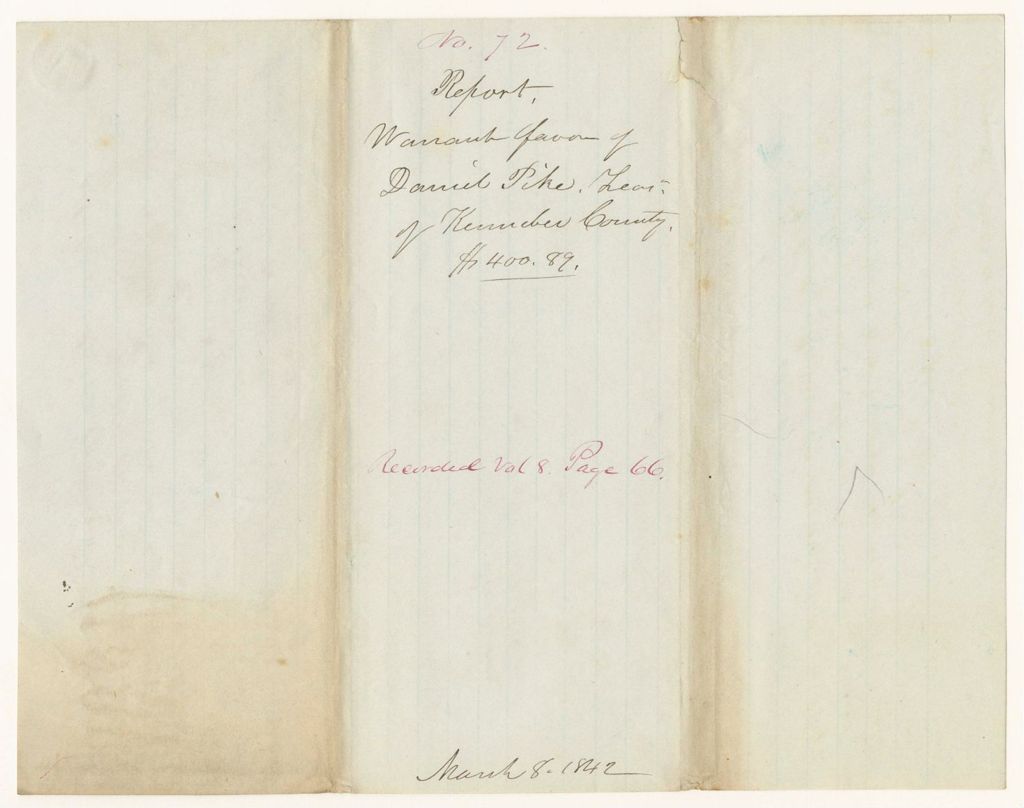 No. 72.
Report,
Warrant favor of
Daniel Pike, Treas:
of Kennebec County.
$400.89.
Recorded Vol 8. Page 66.
March 8. 1842